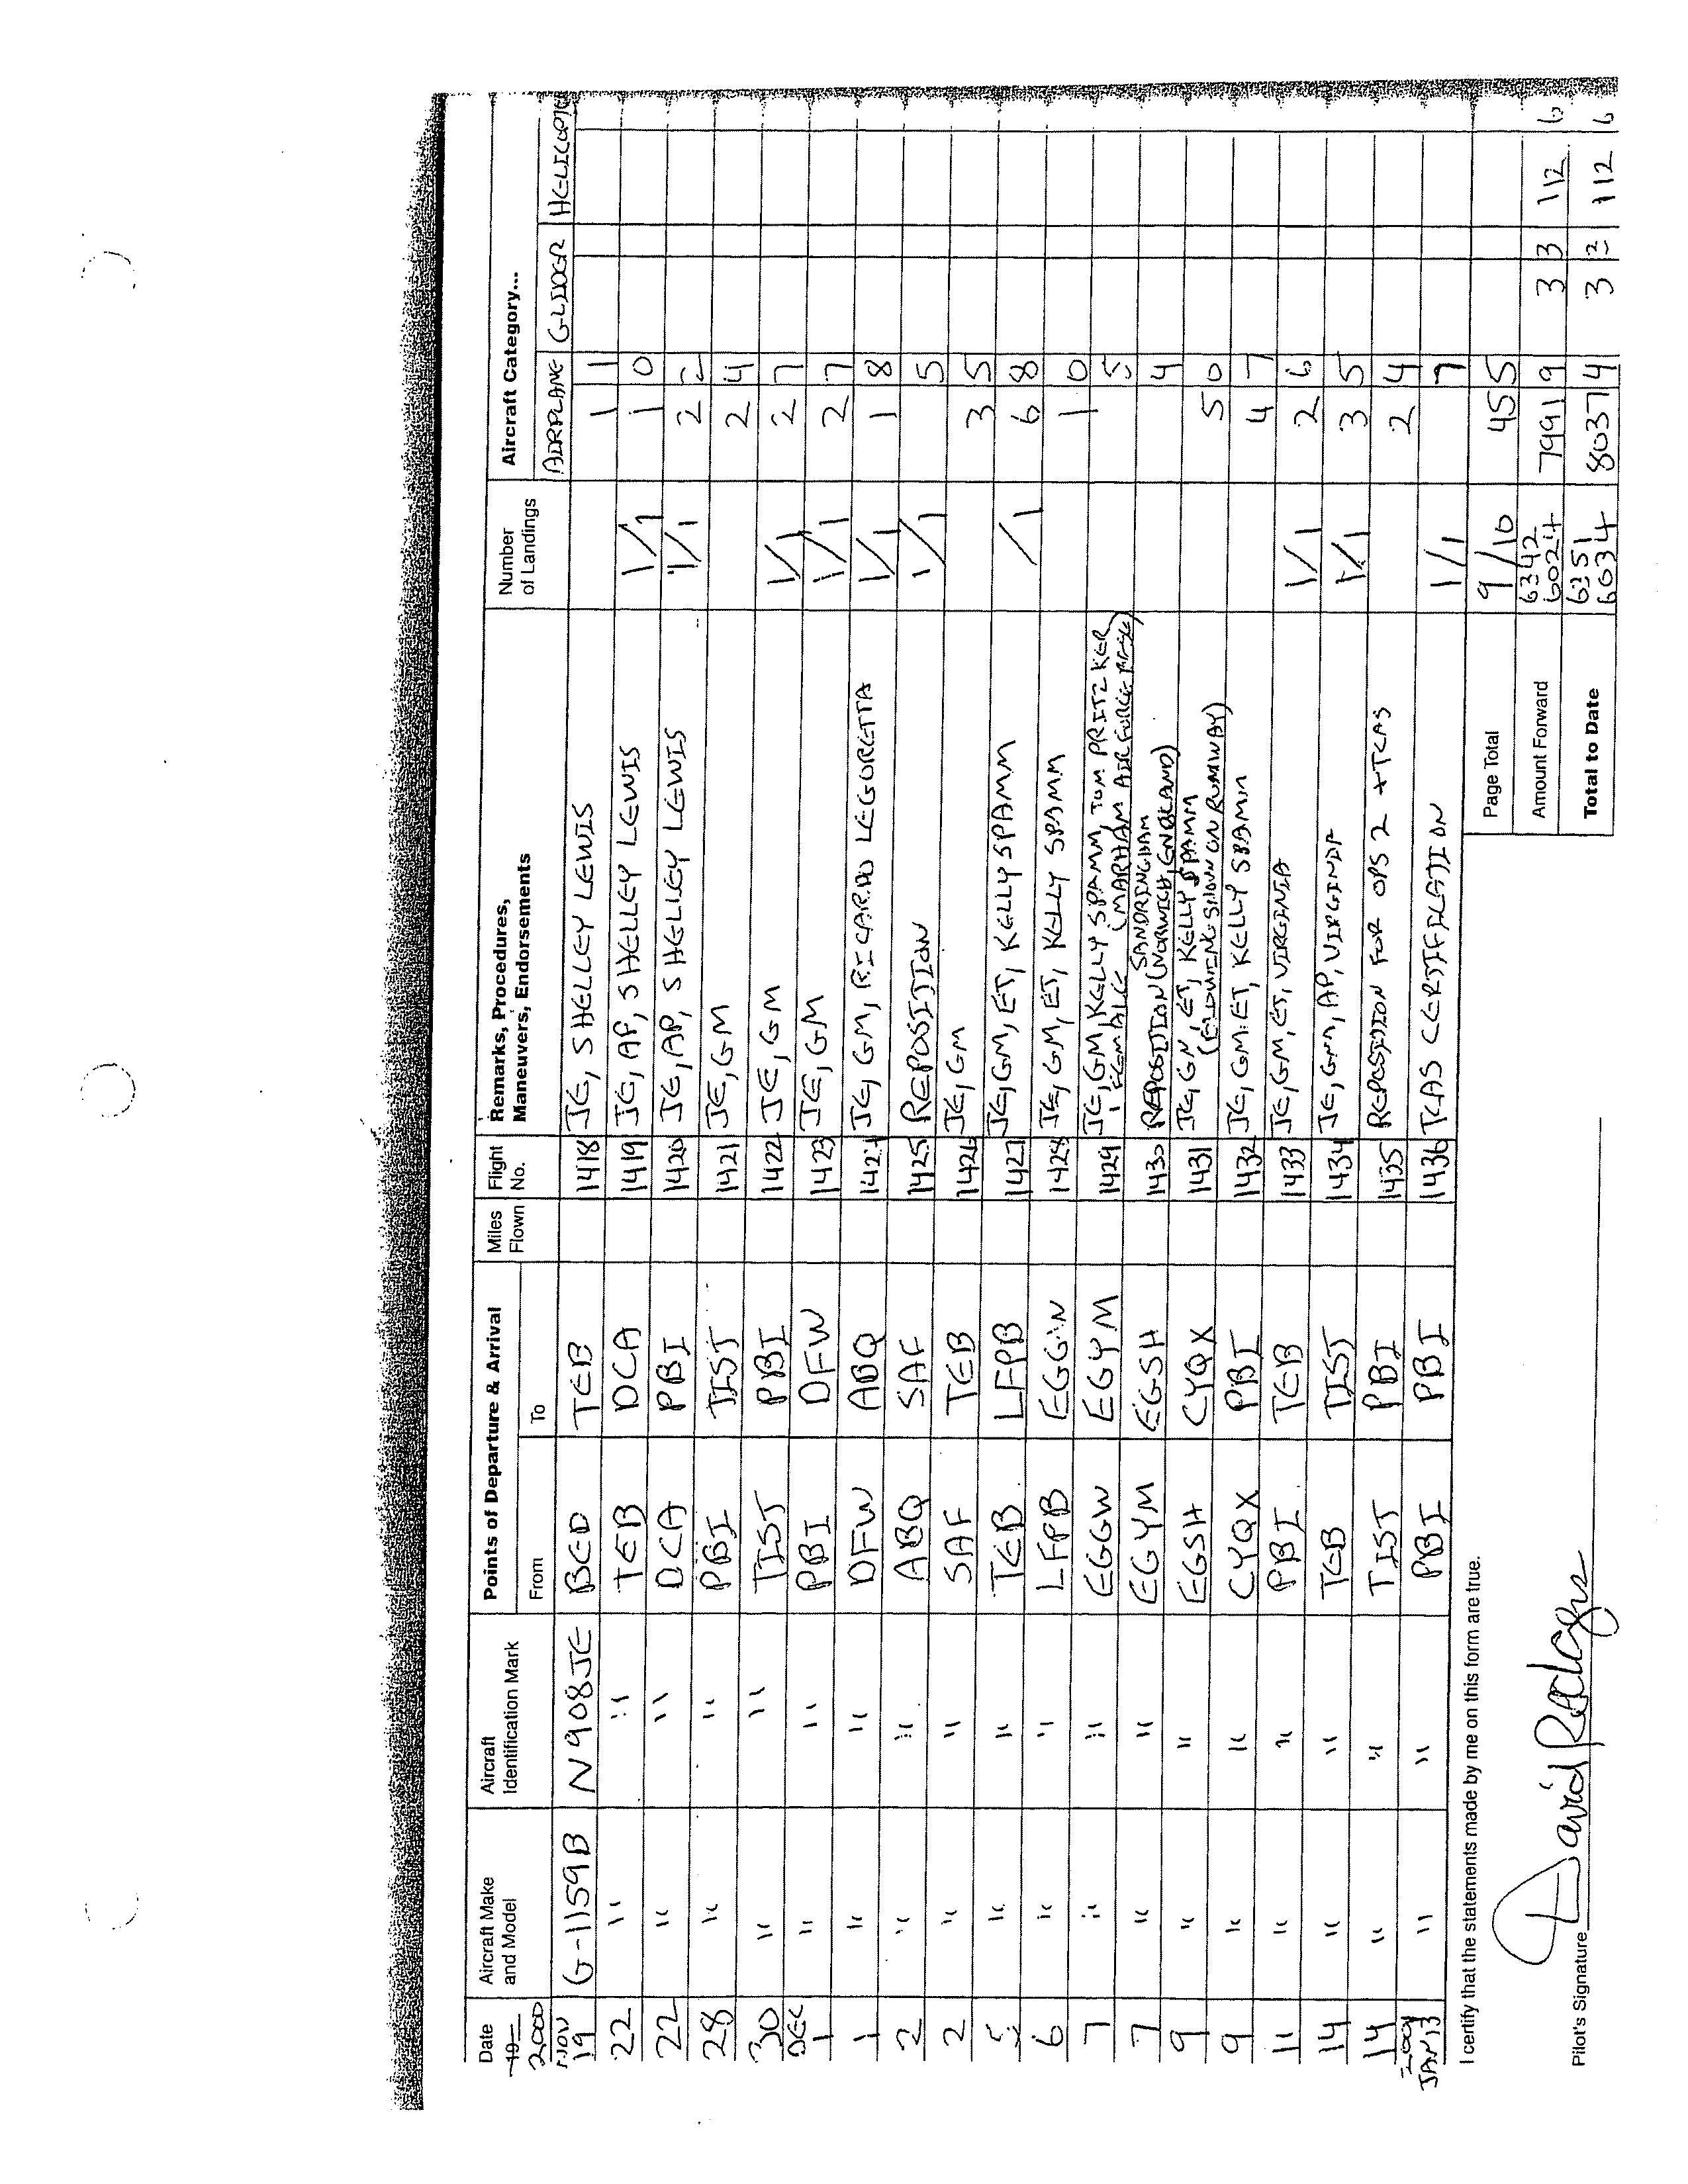 Date Aircraft Make and Model Aircraft Identification Mark Points of Departure & Arrival Miles Flown Flight No. Remarks, Procedures, Maneuvers, Endorsements Number of Landings Aircraft Category...
19 2000 From To AIRPLANE GLIDER
NOV 19 G-1159B N908JE BED TEB 1418 JE, SHELLEY LEWIS 1 1
22 " " TEB DCA 1419 JE, AP, SHELLEY LEWIS 1/1 1 0
22 " " DCA PBI 1420 JE, AP, SHELLEY LEWIS 1/1 2 2
28 " " PBI TIST 1421 JE, GM 2 4
30 " " TIST PBI 1422 JE, GM 1/1 2 7
DEC 1 " " PBI DFW 1423 JE, GM 1/1 2 7
1 " " DFW ABQ 1424 JE, GM, RICARDO LEGORETTA 1/1 1 8
2 " " ABQ SAF 1425 REPOSITION 1/1 5
2 " " SAF TEB 1426 JE, GM 3 5
5 " " TEB LFPB 1427 JE, GM, ET, KELLY SPAMM /1 6 8
6 " " LFPB EGGW 1428 JE, GM, ET, KELLY SPAMM 1 0
7 " " EGGW EGYM 1429 JE, GM, KELLY SPAMM, TOM PRITZKER 5
1 FEMALE (MARHAM AIR FORCE BASE)
SANDRINGHAM
7 " " EGYM EGSH 1430 REPOSITION (NORWICH, ENGLAND) 4
9 " " EGSH CYQX 1431 JE, GM, ET, KELLY SPAMM 5 0
(BLOWING SNOW ON RUNWAY)
9 " " CYQX PBI 1432 JE, GM, ET, KELLY SPAMM 4 7
11 " " PBI TEB 1433 JE, GM, ET, VIRGINIA 1/1 2 6
14 " " TEB TIST 1434 JE, GM, AP, VIRGINIA 1/1 3 5
14 " " TIST PBI 1435 REPOSITION FOR OPS 2 + TCAS 2 4
2001 JAN 13 " " PBI PBI 1436 TCAS CERTIFICATION 1/1 7
I certify that the statements made by me on this form are true.
Page Total 9/10 45 5
Amount Forward 6342 6024 7991 9 3 3 112 6
Total to Date 6351 6034 8037 4 3 3 112 6
Pilot's Signature David Rodgers